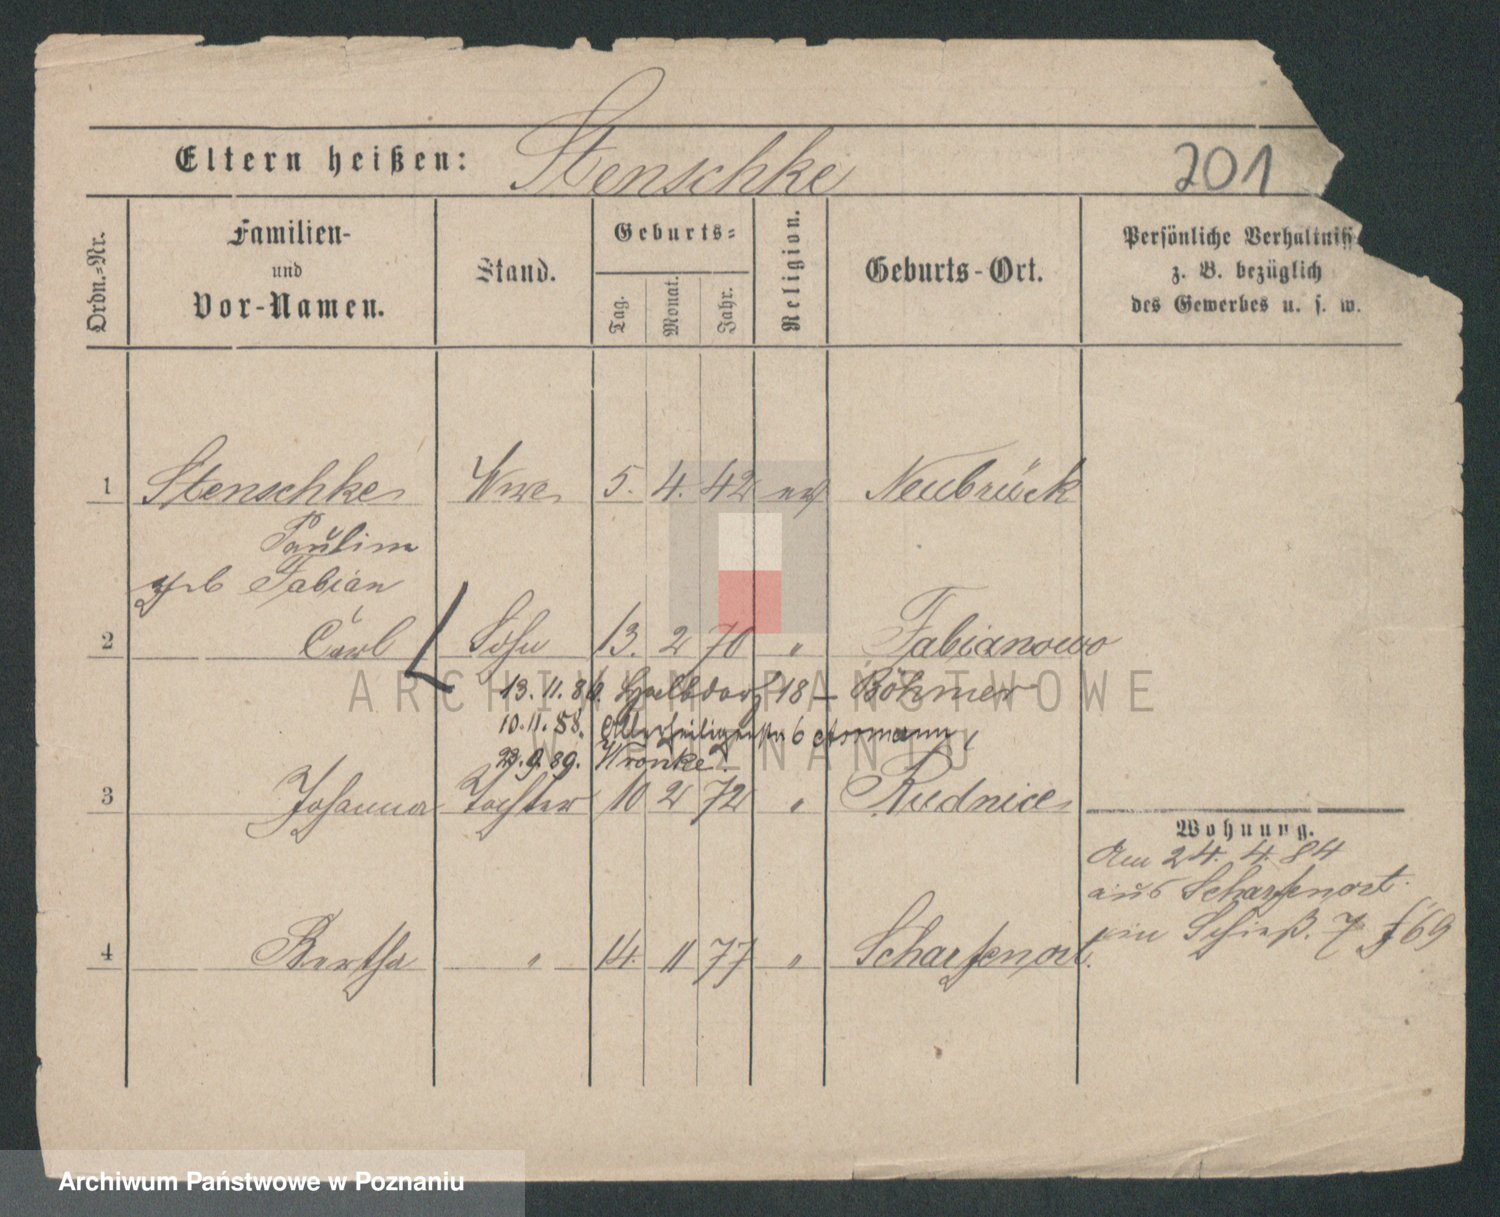 Eltern heißen: Stenschke 201
Ordn.-Nr.
Familien-
und
Vor-Namen.
Stand.
Geburts-
Tag.
Monat.
Jahr.
Religion.
Geburts-Ort.
Persönliche Verhältniss
z. B. bezüglich
des Gewerbes u. s. w.
1 Stenschke Wwe. 5. 4. 42 ev Neubrück
Pauline
geb Fabian
2 Carl Sohn 13. 2 70 " Fabianowo
13. 11. 86. Halbdorf 18 — Böhmer
10. 11. 88. Allerheiligenstr 6 Assmann
23. 9. 89. Wronke.
3 Johanna Tochter 10 2 72 " Rudnice
Wohnung.
Am 24. 4. 84
aus Scharfenort.
in Schieß. 7 f 69
4 Bertha " 14. 11 77 " Scharfenort.
ARCHIWUM PAŃSTWOWE
W POZNANIU
Archiwum Państwowe w Poznaniu